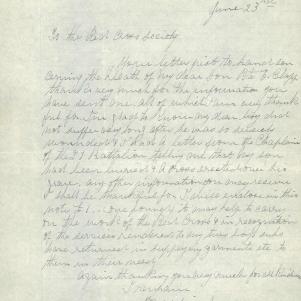 June 23rd
To the Red Cross Society
Your letter just to hand con
cerning the death of my dear Son Pte
thank you very much for the information you
have sent me. all of which I am very thank
ful for. I am glad to know my dear boy did
not suffer very long after he was so severely
wounded. I had a letter from the Chaplain
of the Battalion telling me that my son
had been buried & a Cross erected over his
grave, any other information you may receive
I shall be thankful for. I will enclose in this
note £1.. one pound, to may help to carry
on the work of the Red Cross & in recognition
of the services rendered to my dear boy and
have returned in supplying garments etc to
them in their need,
Again thanking you very much for all kindness
I remain